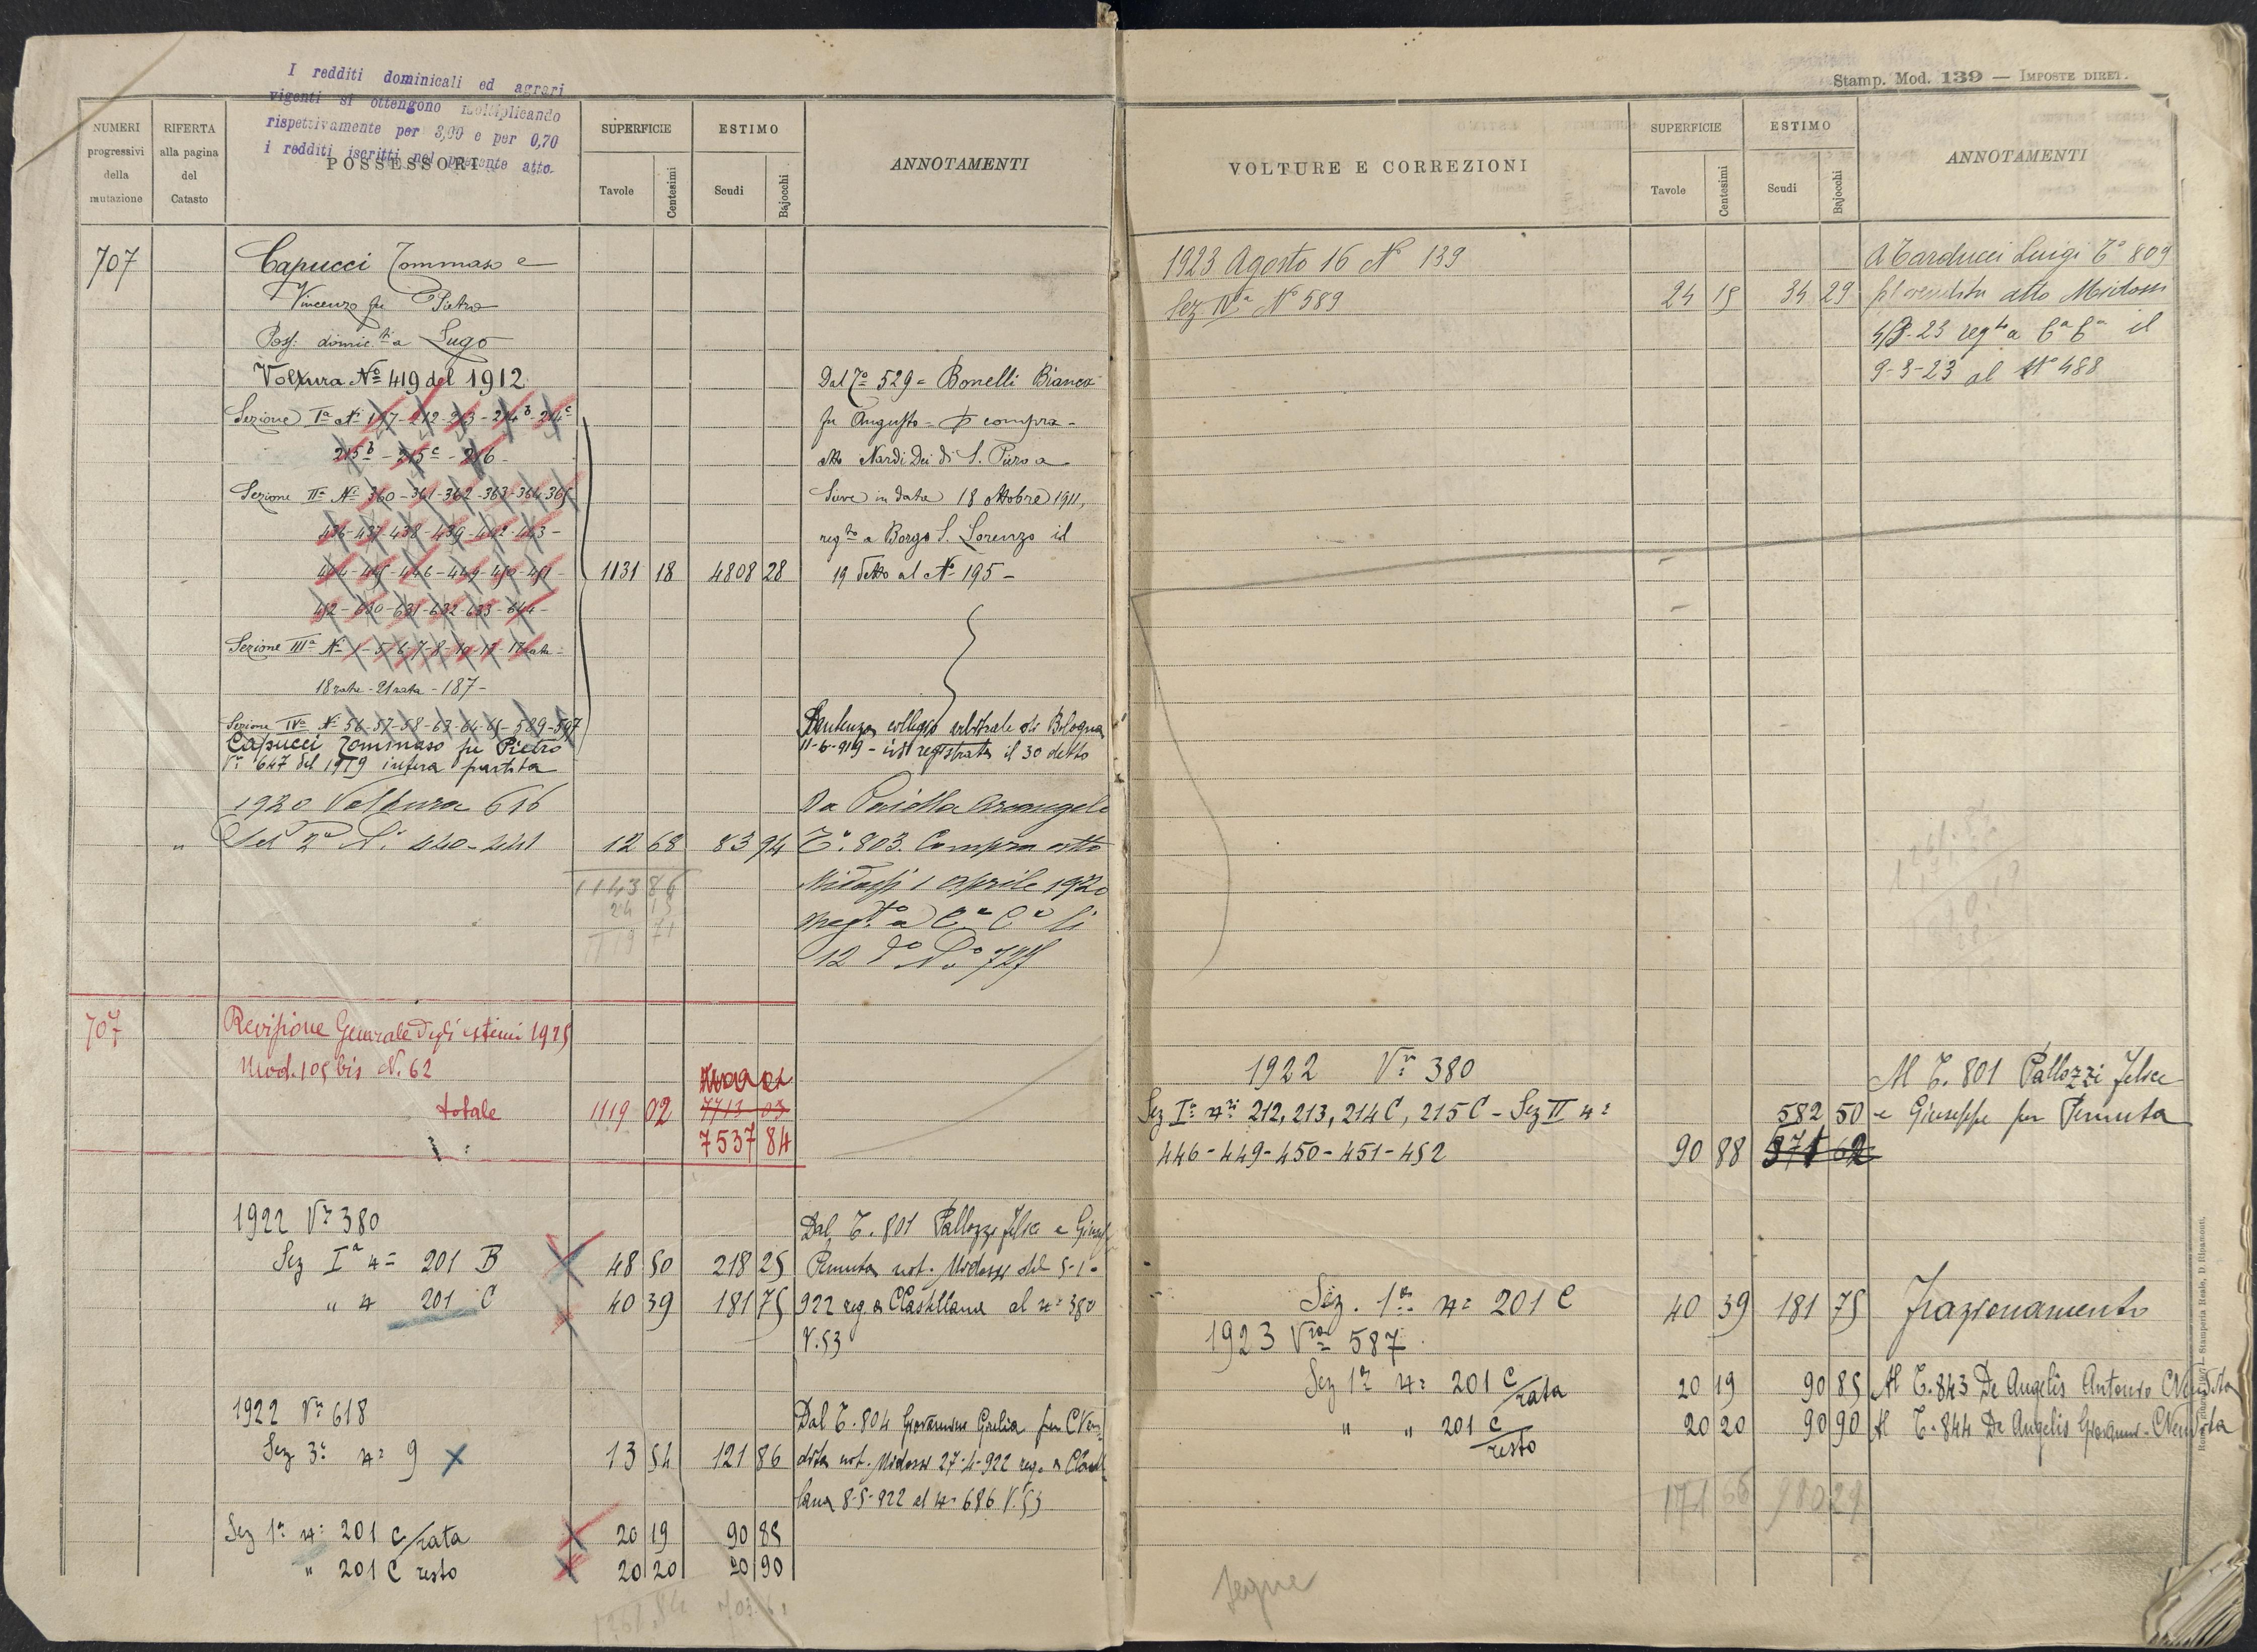 I redditi dominicali ed agrari
vigenti si ottengono moltiplicando
rispettivamente per 3,00 e per 0,70
i redditi iscritti nel presente atto.
NUMERI progressivi della mutazione
RIFERTA alla pagina del Catasto
POSSESSORI
SUPERFICIE
Tavole
Centesimi
ESTIMO
Scudi
Bajocchi
ANNOTAMENTI
707
Capucci Tommaso e
Vincenzo fu Pietro
Poss: domic.ti a Lugo
Voltura No 419 del 1912
Dal To 529 = Bonelli Bianca
Sezione Ia Ni 197-212-213-214b-214c
fu Augusto = p compra -
215b-215c-216-
atto Nardi Dei di S. Piero a
Sezione IIa Ni 360-361-362-363-364-365
Sieve in data 18 ottobre 1911,
436-437-438-439-442-443-
regto a Borgo S. Lorenzo il
444-445-446-449-450-451- 1131 18 4808 28 19 detto al No 195-
452-630-631-632-633-644-
Sezione IIIa Ni 1-5-6-7-8-10-12-17rata-
18 rata-21 rata-187-
Sezione IVa Ni 56-57-58-63-64-65-589-597
Sentenza collegio arbitrale di Bologna
Capucci Tommaso fu Pietro
11-6-919 - ivi registrata il 30 detto
Vra 647 del 1919 intera partita
1920 Voltura 616
Da Arcangelo
" Sez 2a Ni 440-441 12 68 83 94 To. 803. Compra atto
1143 86 Midossi 1 aprile 1920
24 15 regto a Ca Ca li
1119 71 12 do No 727
707 Revisione Generale degli estimi 1925
Mod. 105 bis N. 62
totale 1119 02 7713 03
7537 84
1922 Vra 380
Dal T. 801 Pallozzi Felice e Gius
Sez Ia no 201 B 48 50 218 25 Permuta not. Midossi del 5-1-
" no 201 C 40 39 181 75 922 reg a CCastellana al no 380
V. 53
1922 Vra 618
Dal T. 804 Giovannini Grelia per CVen-
Sez 3a no 9 13 54 121 86 dita not. Midossi 27-4-922 reg. a CCastel
lana 8-5-922 al no 686 V. 53
Sez 1a no 201 C/rata 20 19 90 85
" 201 C resto 20 20 90 90
1261.84
Stamp. Mod. 139 — IMPOSTE DIRET.
VOLTURE E CORREZIONI
SUPERFICIE
Tavole
Centesimi
ESTIMO
Scudi
Bajocchi
ANNOTAMENTI
1923 Agosto 16 No 139
A Carducci Luigi To 809
Sez IVa No 589 24 15 34 29 pl vendita atto Midossi
4/3-23 regto a Ca Ca il
9-3-23 al No 488
1922 Vra 380
Al T. 801 Pallozzi Felice
Sez Ia ni 212, 213, 214C, 215C - Sez II no 582 50 e Giuseppe per Permuta
446-449-450-451-452 90 88 571 62
Sez. 1a no 201 C 40 39 181 75 Frazionamento
1923 Vra 587
Sez 1a no 201 C/rata 20 19 90 85 Al T. 843 De Angelis Antonio CVendita
" " 201 C/resto 20 20 90 90 Al T. 844 De Angelis Giovanni - CVendita
171 66 980 29
segue